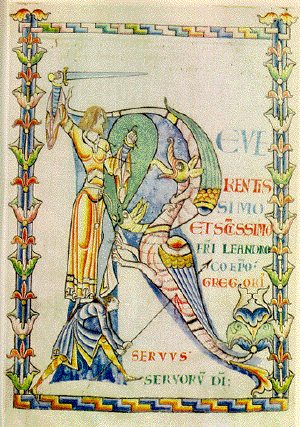 REVE
RENTIS
SIMO
ETSC̄ISSIMO
FRI LEANDRO
COEPŌ·
GREGORI
SERVVS
SERVORŪ DĪ: